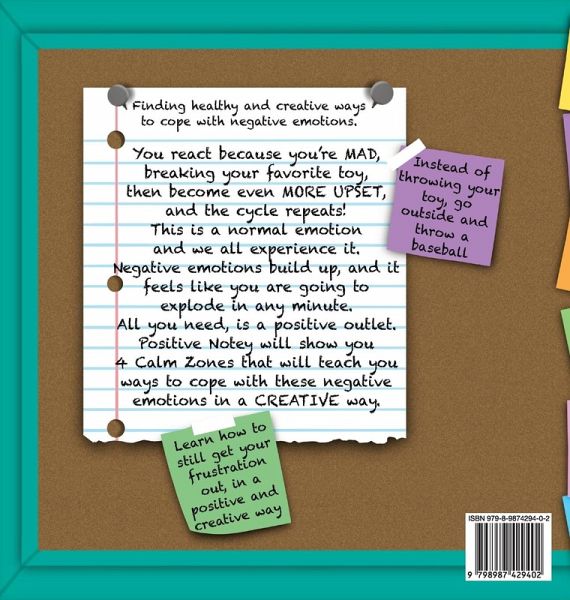 Finding healthy and creative ways
to cope with negative emotions.
You react because you're MAD,
breaking your favorite toy,
then become even MORE UPSET,
and the cycle repeats!
This is a normal emotion
and we all experience it.
Negative emotions build up, and it
feels like you are going to
explode in any minute.
All you need, is a positive outlet.
Positive Notey will show you
4 Calm Zones that will teach you
ways to cope with these negative
emotions in a CREATIVE way.
Instead of
throwing your
toy, go
outside and
throw a
baseball
Learn how to
still get your
frustration
out, in a
positive and
creative way
ISBN 979-8-9874294-0-2
9 798987 429402